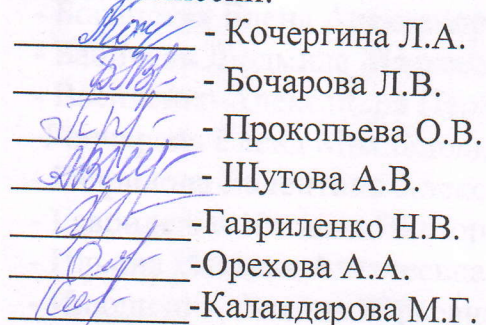 - Кочергина Л.А.
- Бочарова Л.В.
- Прокопьева О.В.
- Шутова А.В.
-Гавриленко Н.В.
-Орехова А.А.
-Каландарова М.Г.